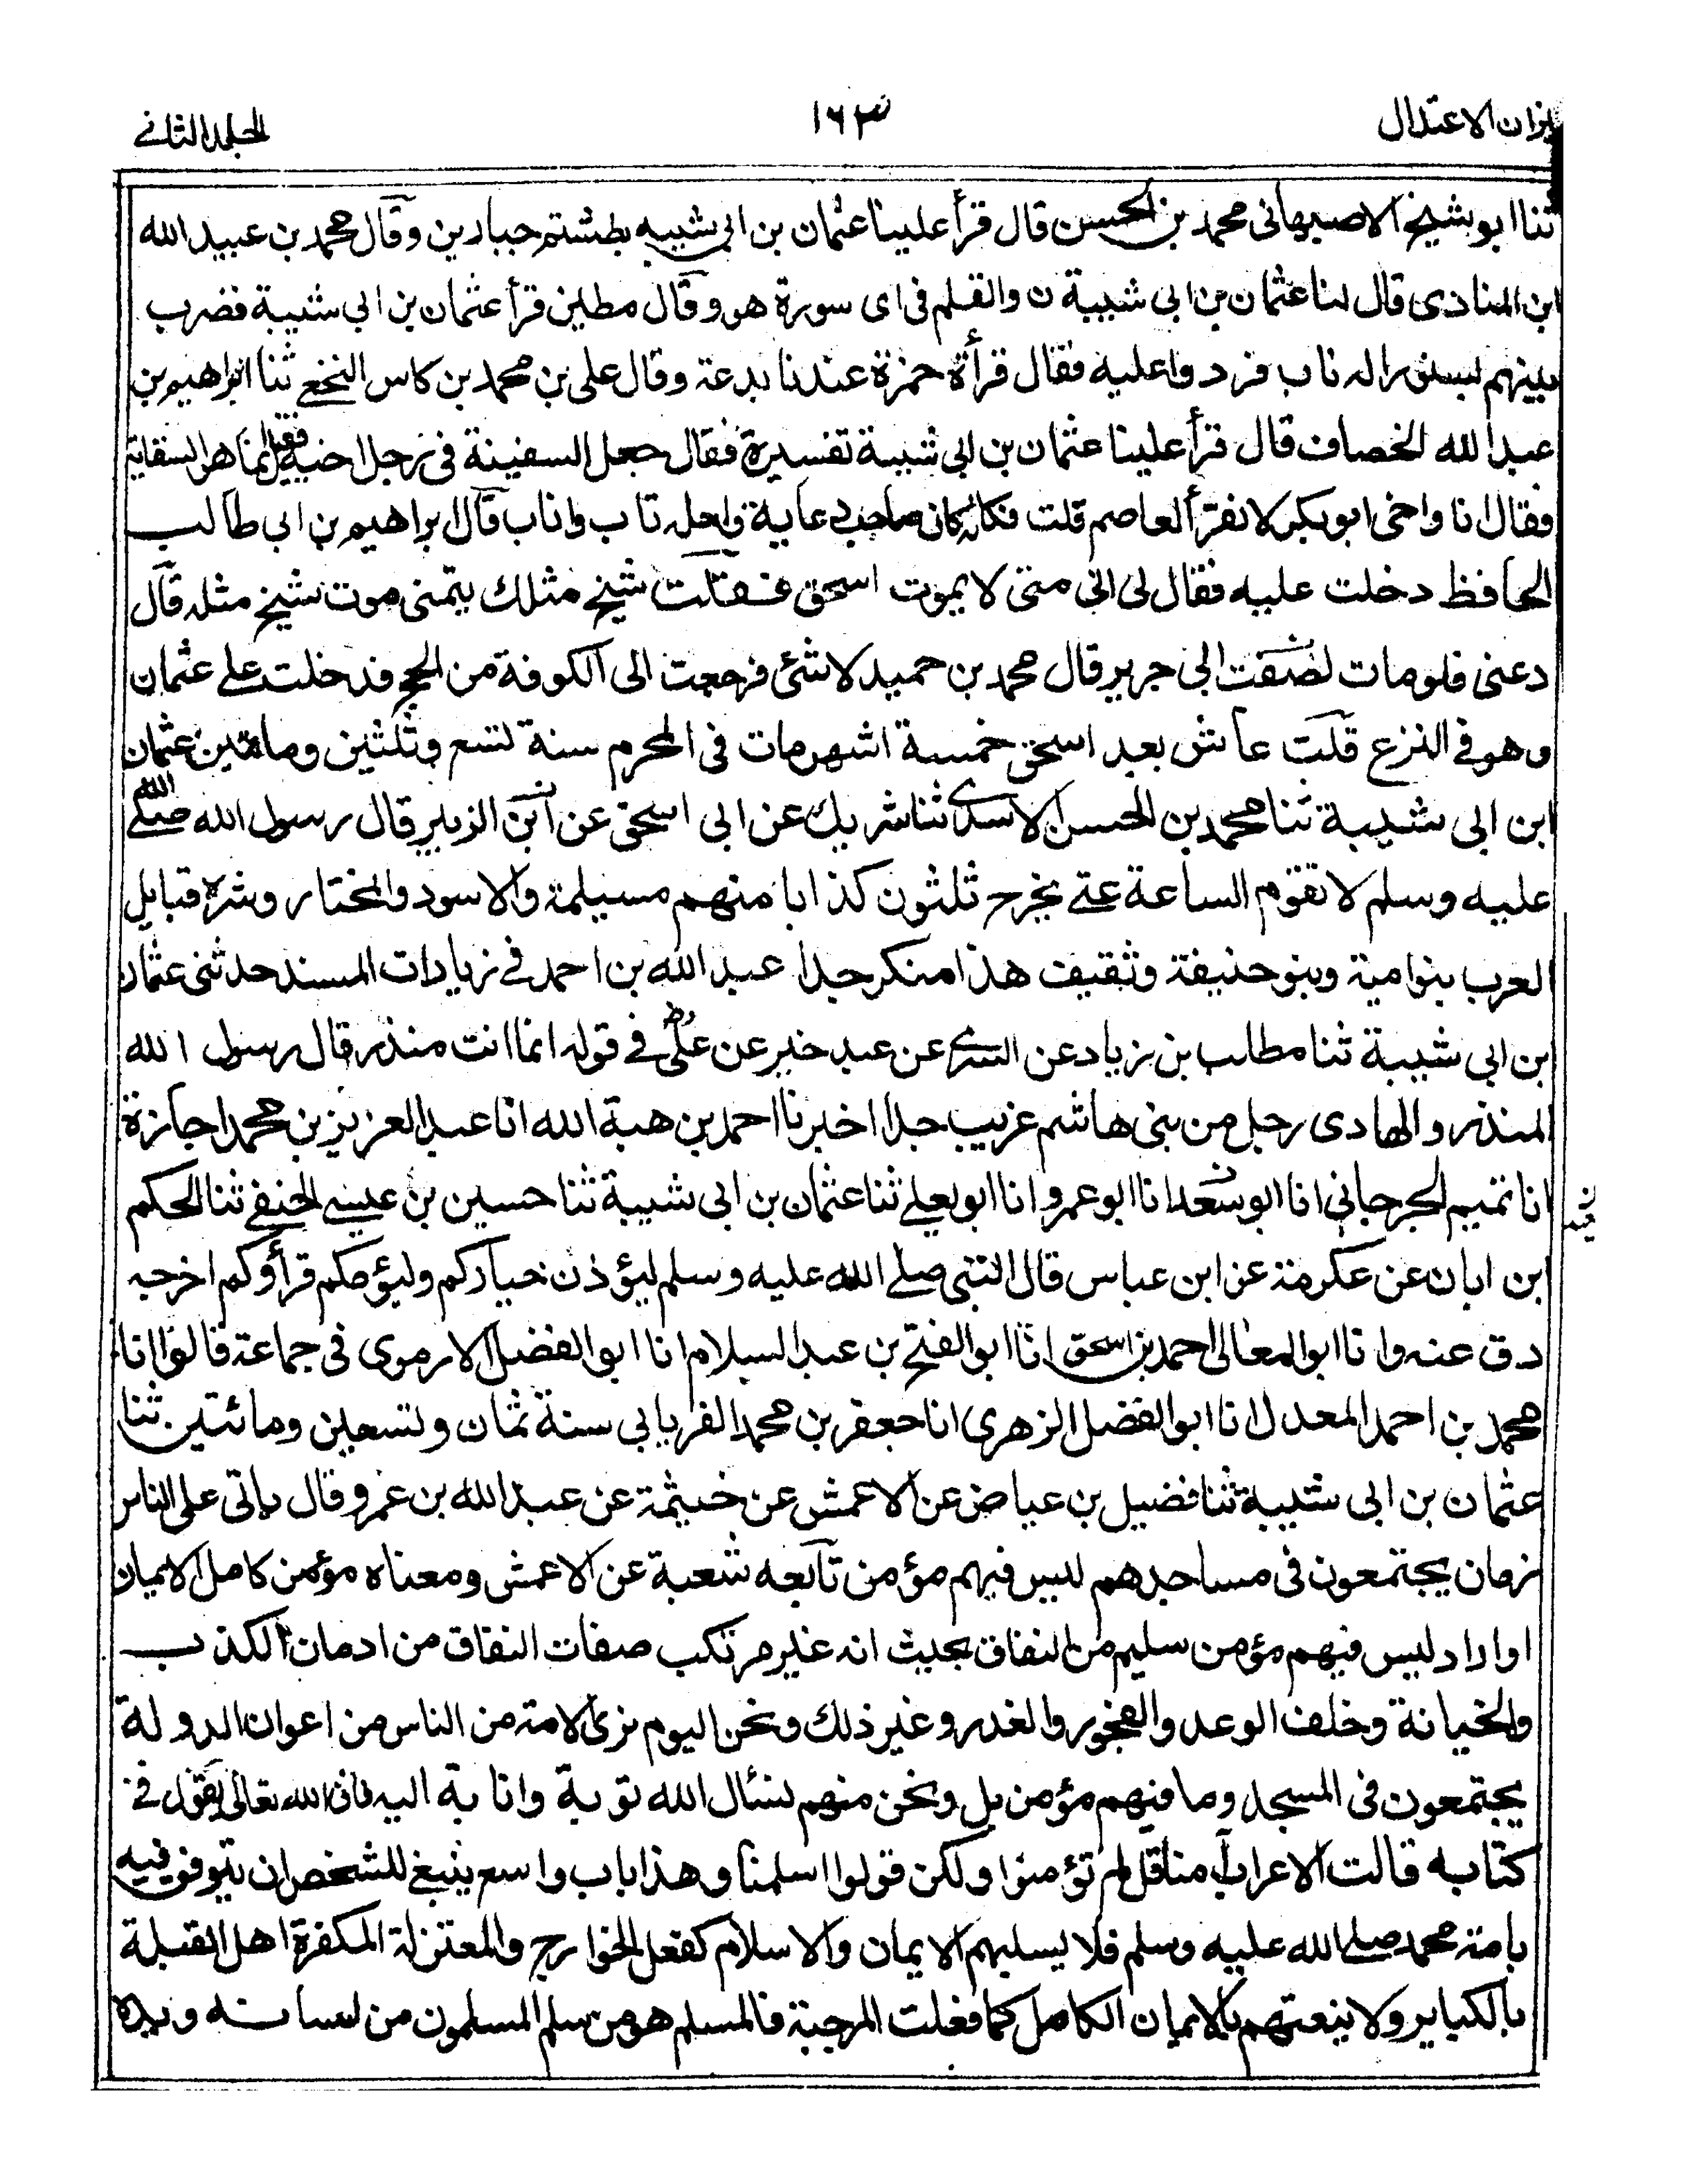 ميزان الاعتدال
١٦٣
الجلد الثانے
ثنا ابو شيخ الاصبهانى محمد بن الحسن قال قرأ علينا عثمان بن ابى شيبه بطشتم جبارين وقال محمد بن عبيد الله
ابن المنادى قال لنا عثمان بن ابى شيبة ن والقلم فى اى سورة هو وقال مطين قرأ عثمان بن ابى شيبة فضرب
بينهم بسنور له ناب فردوا عليه فقال قرأة حمزة عندنا بدعة وقال على بن محمد بن كاس النخعے ثنا ابراهيم بن
عبد الله الخصاف قال قرأ علينا عثمان بن ابى شيبة تفسيره فقال جعل السفينة فى رجل اخيه فقيل انما هو السقاية
فقال انا واخى ابو بكر لا نقرأ لعاصم قلت فكانه كان صاحب دعابة ولعله تاب واناب قال ابراهيم بن ابى طالب
الحافظ دخلت عليه فقال لى الى متى لا يموت اسحق فقلت شيخ مثلك يتمنى موت شيخ مثله قال
دعنى فلو مات لصفت لى جرير قال محمد بن حميد لا شئ فرجعت الى الكوفة من الحج فدخلت على عثمان
وهو فے النزع قلت عاش بعد اسحق خمسة اشهر مات فى المحرم سنة تسع وثلثين ومائتين عثمان
ابن ابى شيبة ثنا محمد بن الحسن الاسدى ثنا شريك عن ابى اسحق عن ابن الزبير قال رسول الله صلے الله
عليه وسلم لا تقوم الساعة حتے يخرج ثلثون كذابا منهم مسيلمة والاسود والمختار وشر قبايل
العرب بنو امية وبنو حنيفة وثقيف هذا منكر جدا عبد الله بن احمد فے زيادات المسند حدثنى عثمان
بن ابى شيبة ثنا مطلب بن زياد عن السدى عن عبد خير عن علىؓ فے قوله انما انت منذر قال رسول الله
المنذر والهادى رجل من بنى هاشم غريب جدا اخبرنا احمد بن هبة الله انا عبد العزيز بن محمد اجازة
انا تميم الجرجانى انا ابو سعد انا ابو عمرو انا ابو يعلے ثنا عثمان بن ابى شيبة ثنا حسين بن عيسے الحنفے ثنا الحكم
ابن ابان عن عكرمة عن ابن عباس قال النبى صلے الله عليه وسلم ليؤذن خياركم وليؤمكم قرأوكم اخرجه
د ق عنه وانا ابو المعالى احمد بن اسحق انا ابو الفتح بن عبد السلام انا ابو الفضل الارموى فى جماعة قالوا انا
محمد بن احمد المعدل انا ابو الفضل الزهرى انا جعفر بن محمد الفريابى سنة ثمان وتسعين ومائتين ثنا
عثمان بن ابى شيبة ثنا فضيل بن عياض عن الاعمش عن خيثمة عن عبد الله بن عمرو قال ياتى على الناس
زمان يجتمعون فى مساجدهم ليس فيهم مؤمن تابعه شعبة عن الاعمش ومعناه مؤمن كامل الايمان
او اراد ليس فيهم مؤمن سليم من النفاق بحيث انه غير مرتكب صفات النفاق من ادمان الكذب
والخيانة وخلف الوعد والفجور والغدر وغير ذلك ونحن اليوم نرى الامة من الناس من اعوان الدولة
يجتمعون فى المسجد وما فيهم مؤمن بل ونحن منهم نسئال الله توبة وانابة اليه فان الله تعالى يقول فے
كتابه قالت الاعراب آمنا قل لم تؤمنوا ولكن قولوا اسلمنا وهذا باب واسع ينبغے للشخص ان يتوفق فيه
بامة محمد صلے الله عليه وسلم فلا يسلبهم الايمان والاسلام كفعل الخوارج والمعتزلة المكفرة اهل القبلة
بالكباير ولا ينعتهم بالايمان الكامل كما فعلت المرجية فالمسلم هو من سلم المسلمون من لسانه ويده